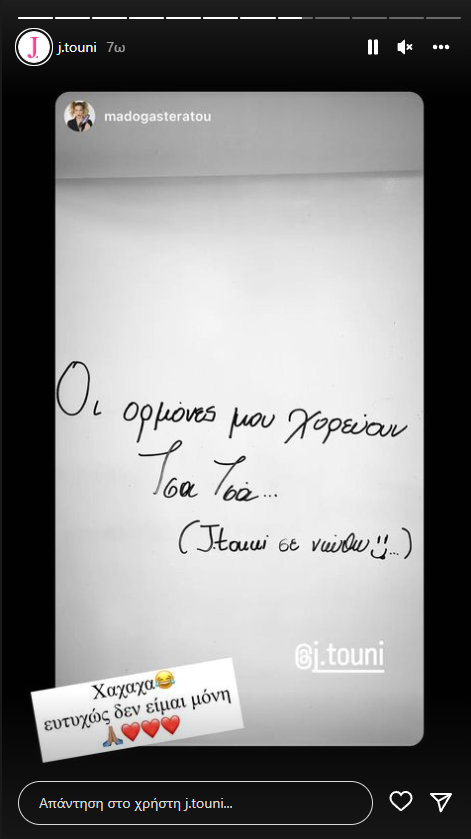 j.touni 7ω
madogasteratou
Οι ορμόνες μου χορεύουν
Τσα Τσά...
(J.touni σε νιώθω...)
@j.touni
Χαχαχα😂
ευτυχώς δεν είμαι μόνη
🙏🏽❤️❤️❤️
Απάντηση στο χρήστη j.touni...